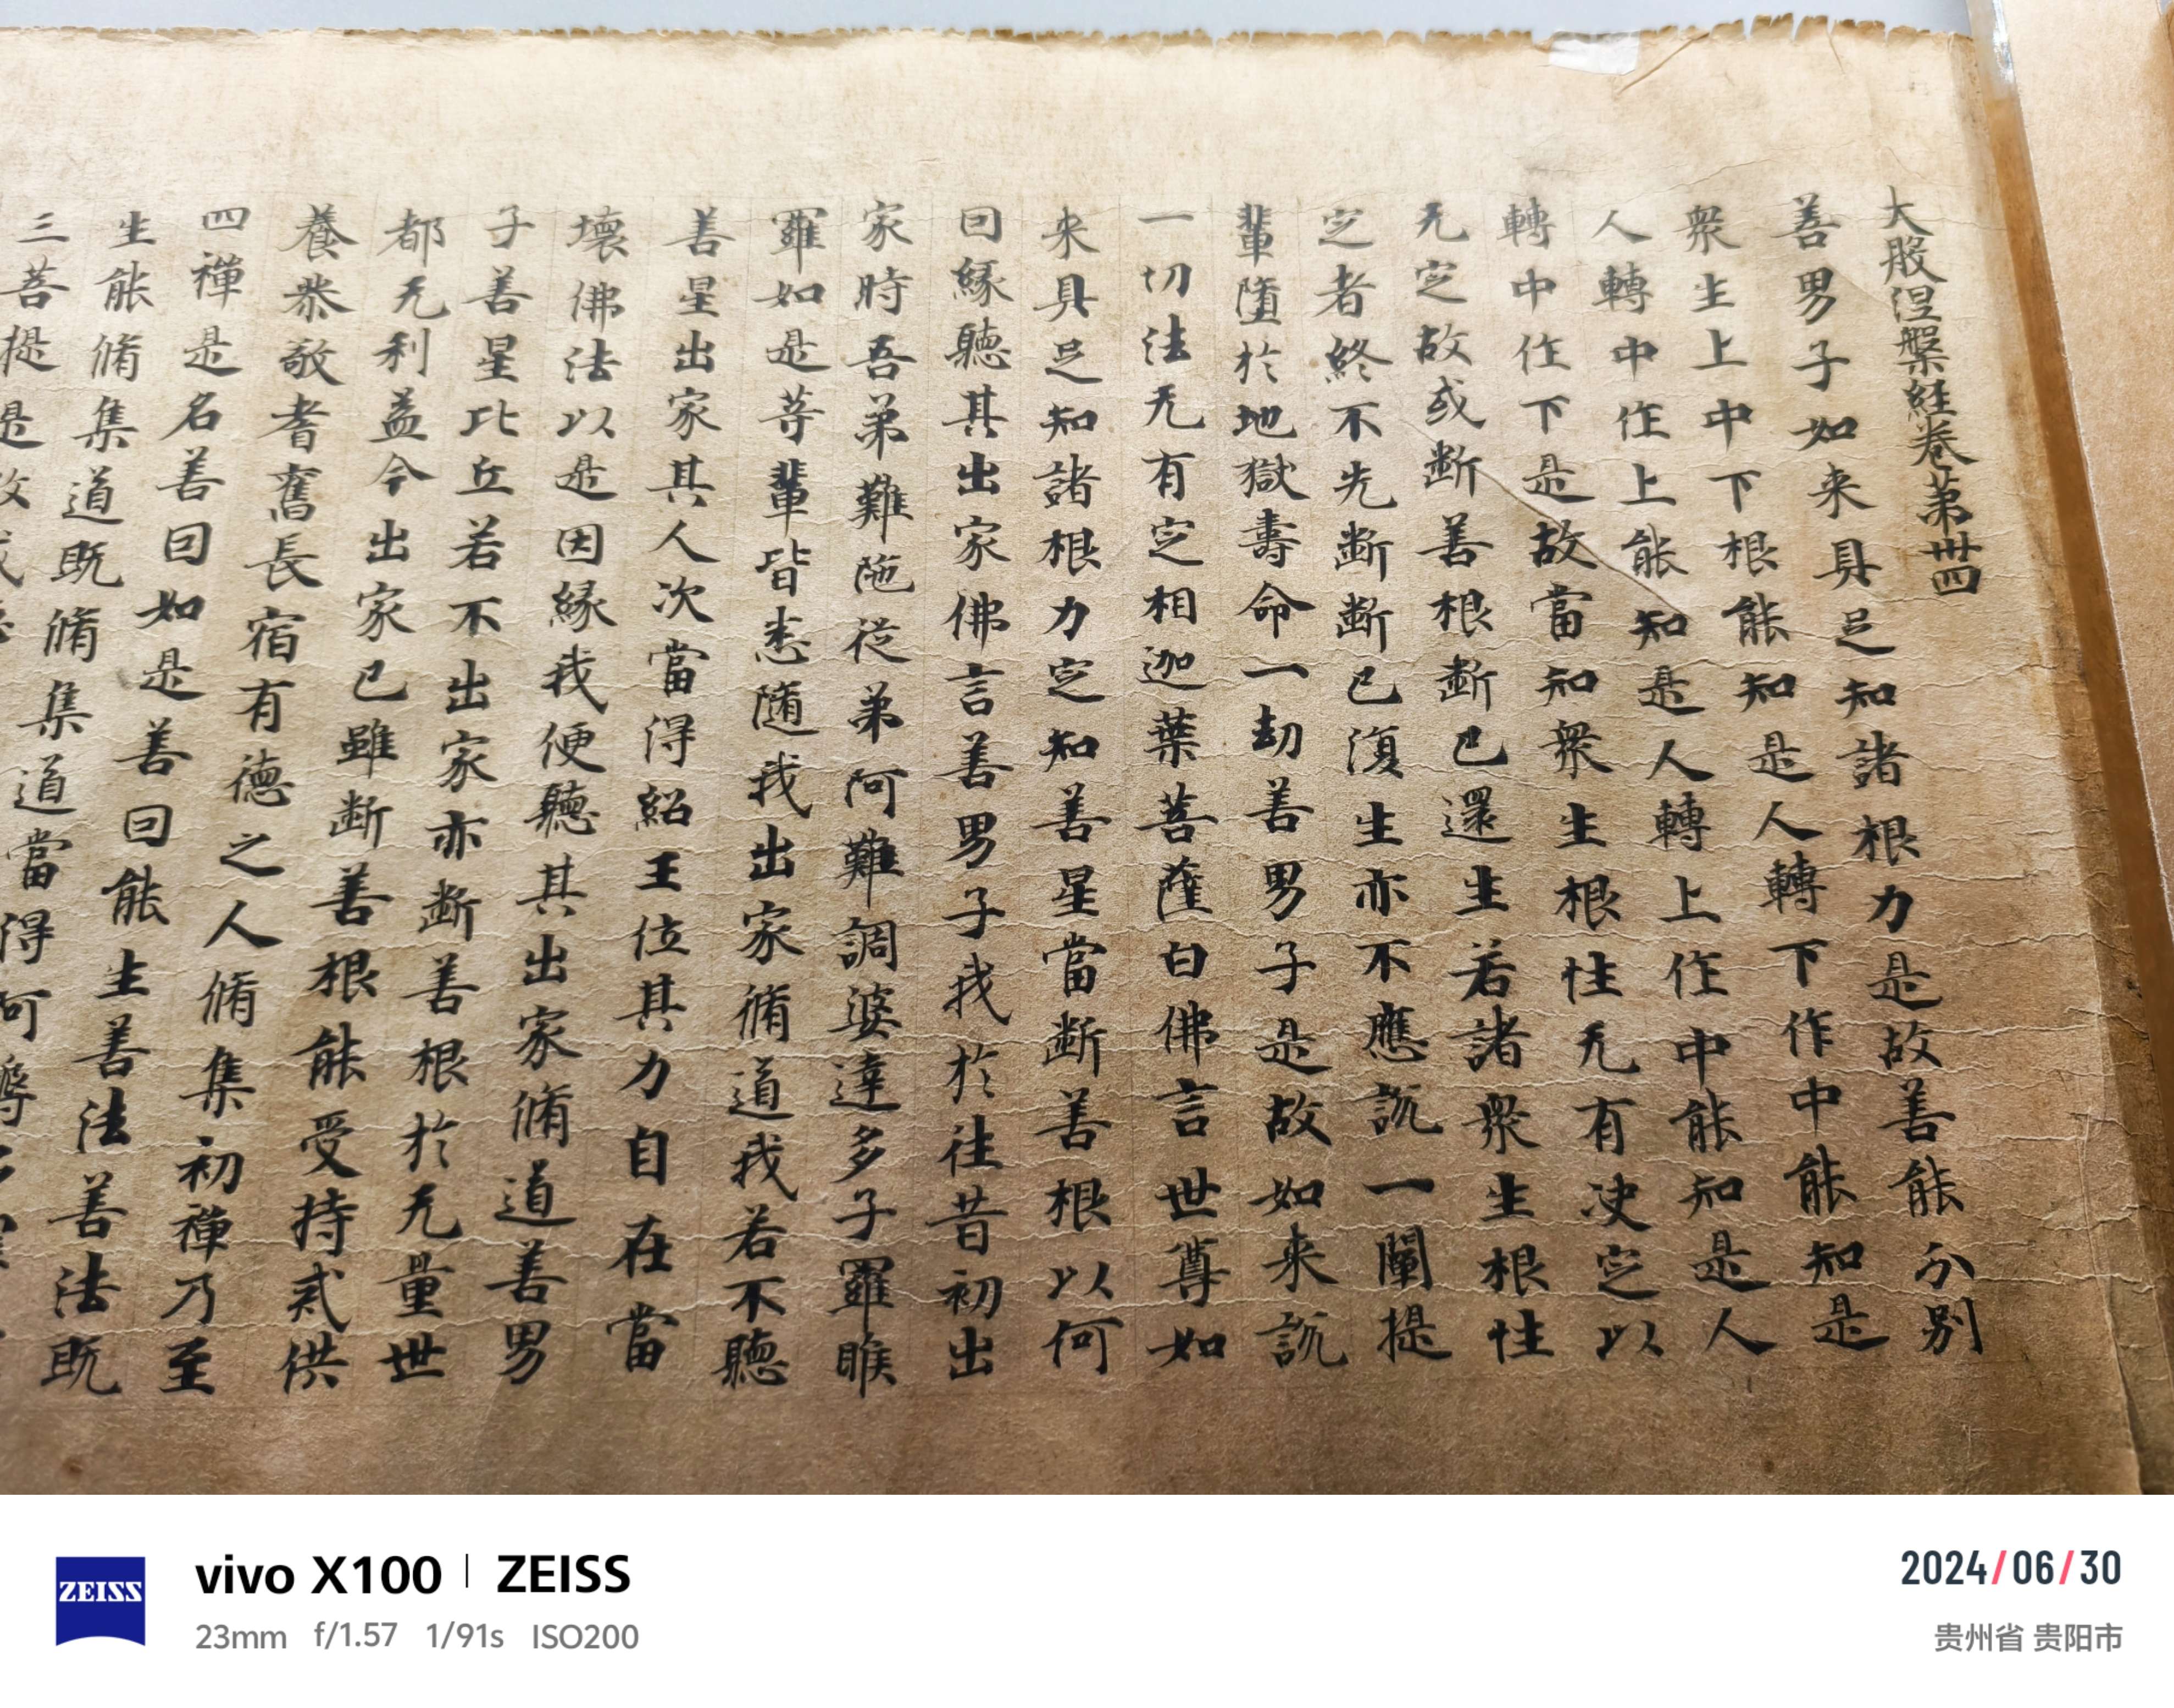 大般涅槃経卷第卌四
善男子如来具足知諸根力是故善能分別
衆生上中下根能知是人轉下作中能知是
人轉中作上能知是人轉上作中能知是人
轉中作下是故當知衆生根性无有决定以
无定故或断善根断已還生若諸衆生根性
定者終不先断断已復生亦不應説一闡提
輩墮於地獄壽命一劫善男子是故如来説
一切法无有定相迦葉菩薩白佛言世尊如
来具足知諸根力定知善星當断善根以何
因緣聽其出家佛言善男子我於往昔初出
家時吾弟難陁從弟阿難調婆達多子羅睺
羅如是等輩皆悉随我出家脩道我若不聽
善星出家其人次當得紹王位其力自在當
壞佛法以是因緣我便聽其出家脩道善男
子善星比丘若不出家亦断善根於无量世
都无利益今出家已雖断善根能受持戒供
養恭敬耆舊長宿有德之人脩集初禪乃至
四禪是名善因如是善因能生善法善法既
生能脩集道既脩集道當得
三菩提是故
ZEISS
vivo X100 | ZEISS
23mm f/1.57 1/91s ISO200
2024/06/30
贵州省 贵阳市